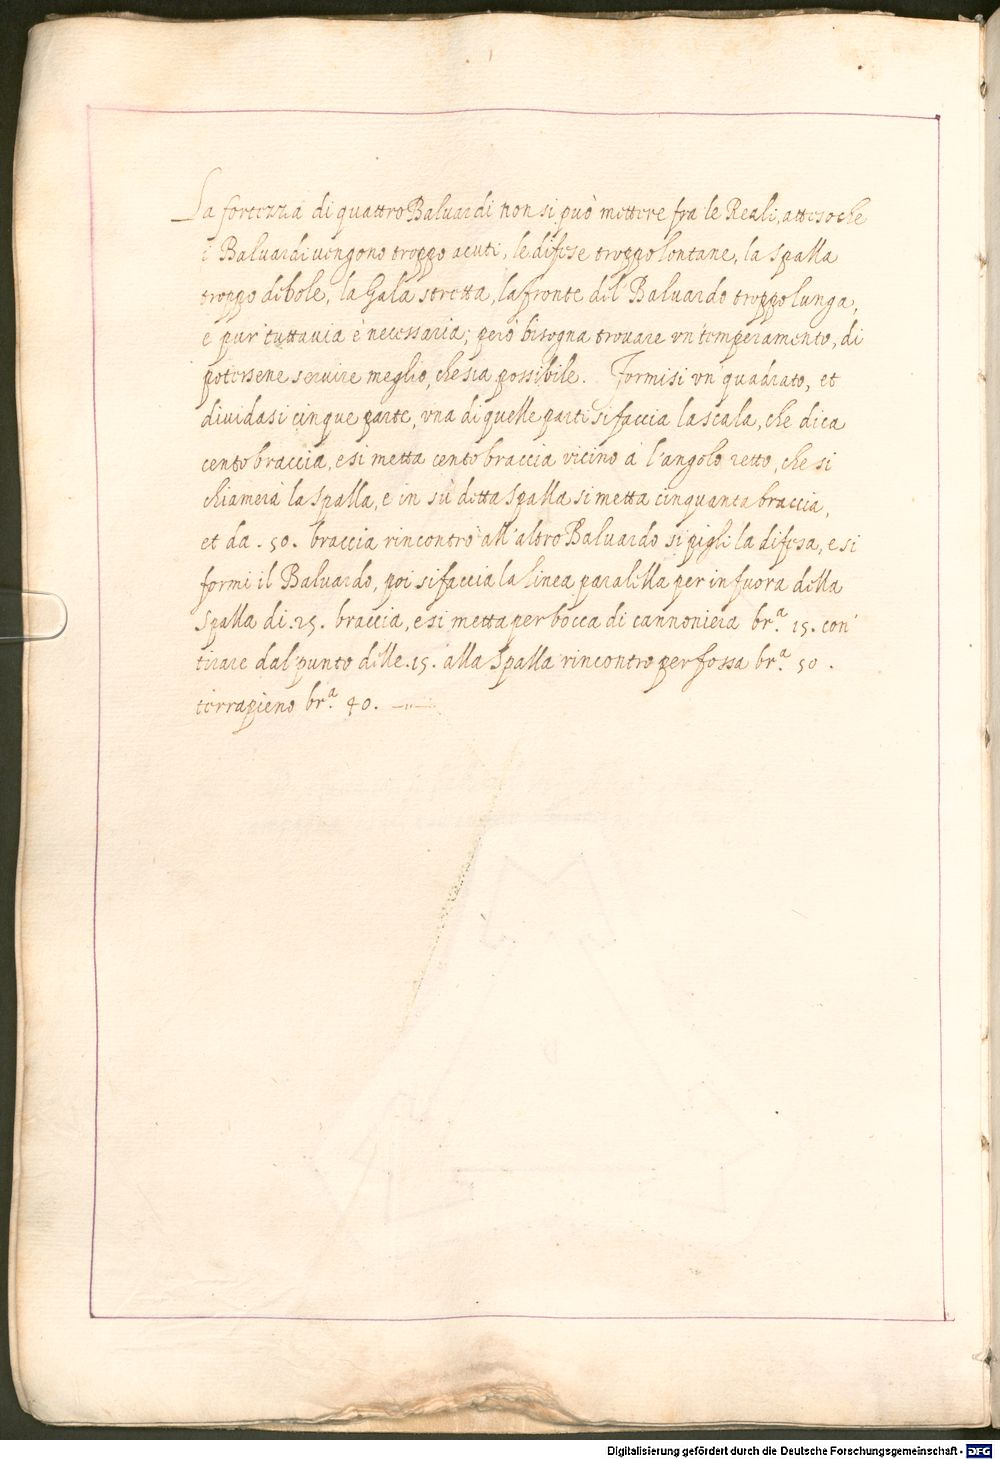 La fortezza di quattro Baluardi non si può mettere fra le Reali, attesoche
i Baluardi vengono troppo acuti, le difese troppo lontane, la spalla
troppo debole, la Gola stretta, la fronte del Baluardo troppo lunga,
e pur tuttavia è necessaria; però bisogna trovare vn temperamento, di
potersene servire meglio, che sia possibile. Formisi vn quadrato, et
dividasi cinque parte, vna di quelle parti si faccia la scala, che dica
cento braccia, e si metta cento braccia vicino à l'angolo retto, che si
chiamerà la spalla, e in sù detta spalla si metta cinquanta braccia,
et da .50. braccia rincontro all'altro Baluardo si pigli la difesa, e si
formi il Baluardo, poi si faccia la linea paralella per in fuora della
spalla di .25. braccia, e si metta per bocca di cannoniera br.ª 15. con
tirare dal punto delle .15. alla spalla rincontro per fossa br.ª 50.
terrapieno br.ª 40.
Digitalisierung gefördert durch die Deutsche Forschungsgemeinschaft - DFG